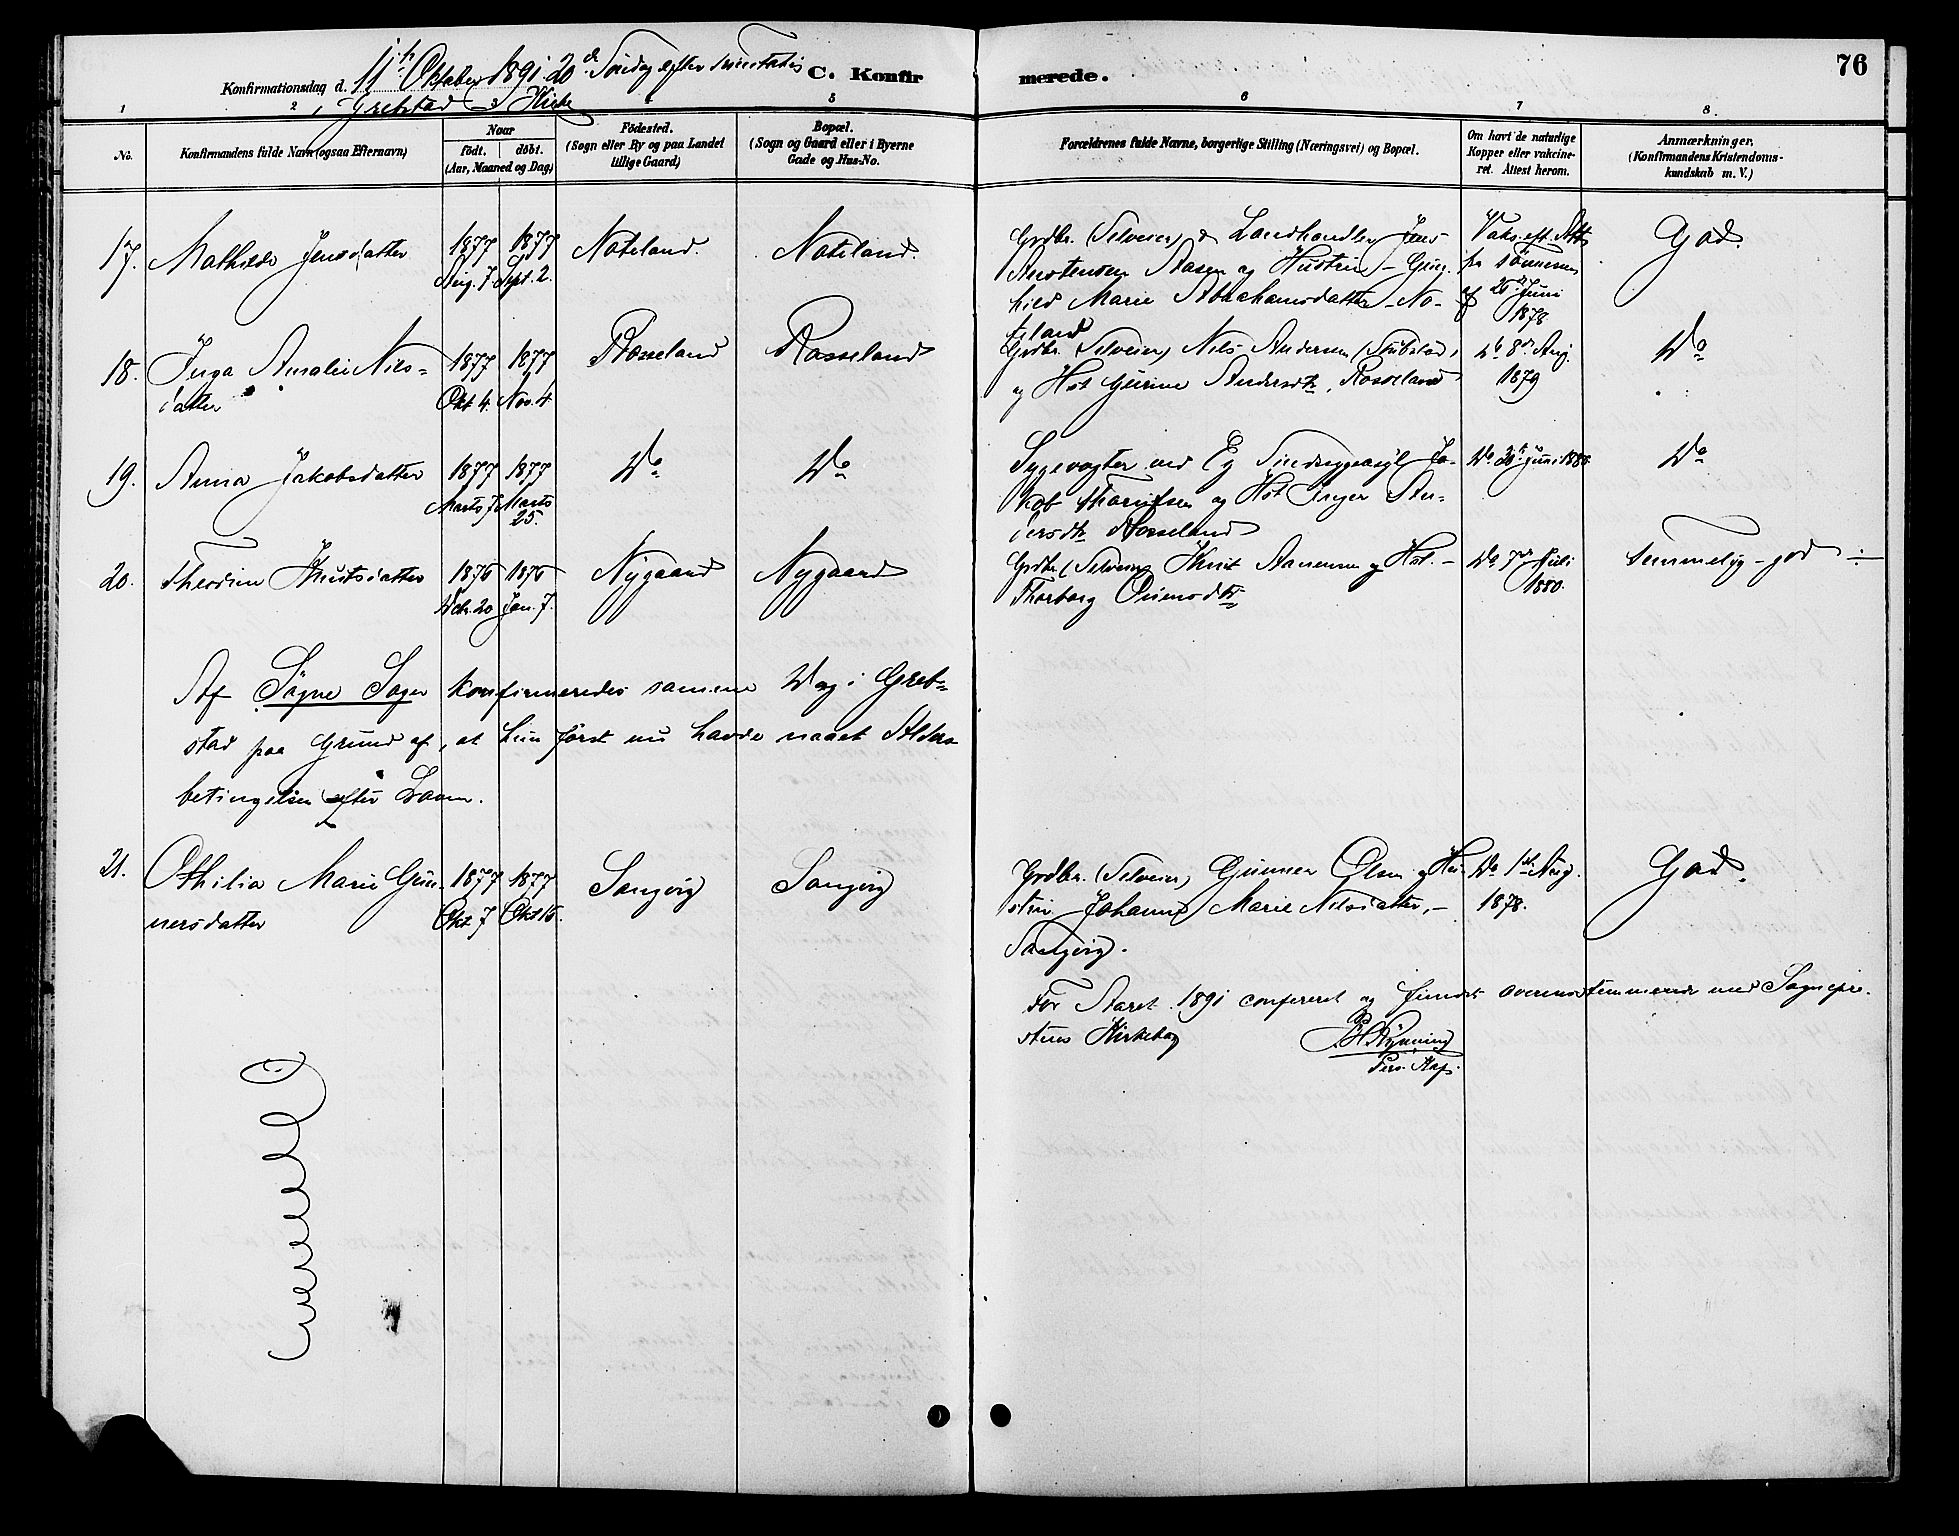 76
Konfirmationsdag d. 11te Oktober 1891 20de Søndag efter Trinitatis
i Grebstad Kirke
C. Konfirmerede.
1 2 3 4 5 6 7 8.
No.
Konfirmandens fulde Navn (ogsaa Efternavn)
Naar
født. døbt.
(Aar, Maaned og Dag)
Fødested.
(Sogn eller By og paa Landet
tillige Gaard)
Bopæl.
(Sogn og Gaard eller i Byerne
Gade og Hus-No.
Forældrenes fulde Navne, borgerlige Stilling (Næringsvei) og Bopæl.
Om havt de naturlige
Kopper eller vakcine-
ret. Attest herom.
Anmærkninger.
(Konfirmandens Kristendoms-
kundskab m. V.)
17. Mathilde Jensdatter 1877 1877 Noteland. Noteland.
Aug. 7 Sept. 2.
Grdbr. (Selveier) & Landhandler Jens
Aasen og Hustru Gun-
hild Marie Abrahamsdatter No-
teland
Vaks. eft. Att.
fr
af Juni
1878
God.
18. Inga Amalie Nils-
datter
1877 1877 Rosseland Rosseland
Okt 4. Nov. 4
Grdbr. (Selveier) Nils Andersen
og Hst Gurine Andersdtr, Rosseland
Do 8de Aug.
1879
Do
19. Anna Jakobsdatter 1877 1877 Do Do
Marts 7 Marts
25.
Sygevogter ved Eg Sindssygeasyl Ja-
kob og Hst Inger An-
dersdtr Rosseland
Do Juni 1880
Do
20. Theodine Knutsdatter 1876 1876 Nygaard Nygaard
Dcbr. 20 Jan. 7.
Grdbr. (Selveier) Knut Aanensen og Hst. -
Thorborg
Do 7de Juli
1880.
temmelig-god
Af Søgne Sogn konfirmeredes samme Dag i Greb-
stad paa Grund af, at hun først nu havde naaet Alders-
betingelsen efter Loven.
21. Othilia Marie Gun-
nersdatter
1877 1877 Sangvig Sangvig
Okt 7 Okt 15.
Grdbr. (Selveier) Gunner Olsen og Hu-
stru Johanne Marie Nilsdatter, -
Sangvig.
Do 1ste Aug.
1878.
God.
For Aaret 1891 confereret og fundet overensstemmende med Sognepre-
stens Kirkebog
Pers. Kap.